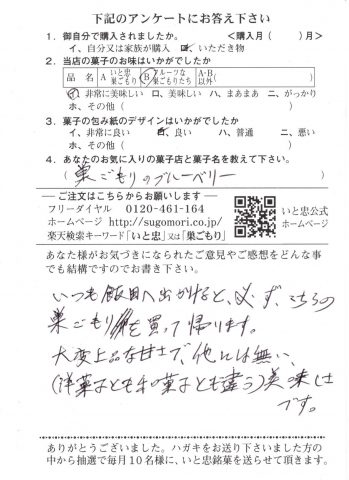 下記のアンケートにお答え下さい
1．御自分で購入されましたか。　＜購入月（　　）月＞
イ、自分又は家族が購入　ロ、いただき物
2．当店の菓子のお味はいかがでしたか
品　名　A いと忠巣ごもり　B フルーツな巣ごもりたち　A・B以外（　　）
イ、非常に美味しい　ロ、美味しい　ハ、まあまあ　ニ、がっかり
ホ、その他（　　）
3．菓子の包み紙のデザインはいかがでしたか
イ、非常に良い　ロ、良い　ハ、普通　ニ、悪い
ホ、その他（　　）
4．あなたのお気に入りの菓子店と菓子名を教えて下さい。
（巣ごもりのブルーベリー）
ご注文はこちらからお願いします
フリーダイヤル　0120-461-164
ホームページ　http://sugomori.co.jp/
楽天検索キーワード「いと忠」又は「巣ごもり」
いと忠公式
ホームページ
あなた様がお気づきになられたご意見やご感想をどんな事
でも結構ですのでお書き下さい。
いつも飯田へ出かけると、必ず、こちらの
巣ごもりを買って帰ります。
大変上品な甘さで、他には無い、
（洋菓子とも和菓子とも違う）美味しさ
です。
ありがとうございました。ハガキをお送り下さいました方の
中から抽選で毎月10名様に、いと忠銘菓を送らせて頂きます。